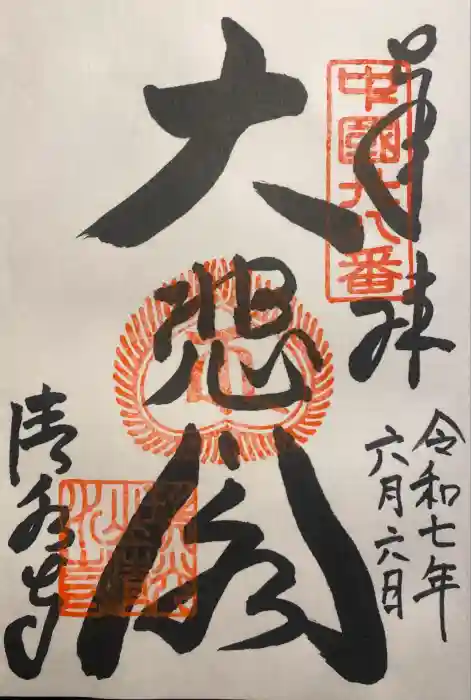 奉拝
中國廿八番
令和七年
六月六日
大悲閣
清水寺